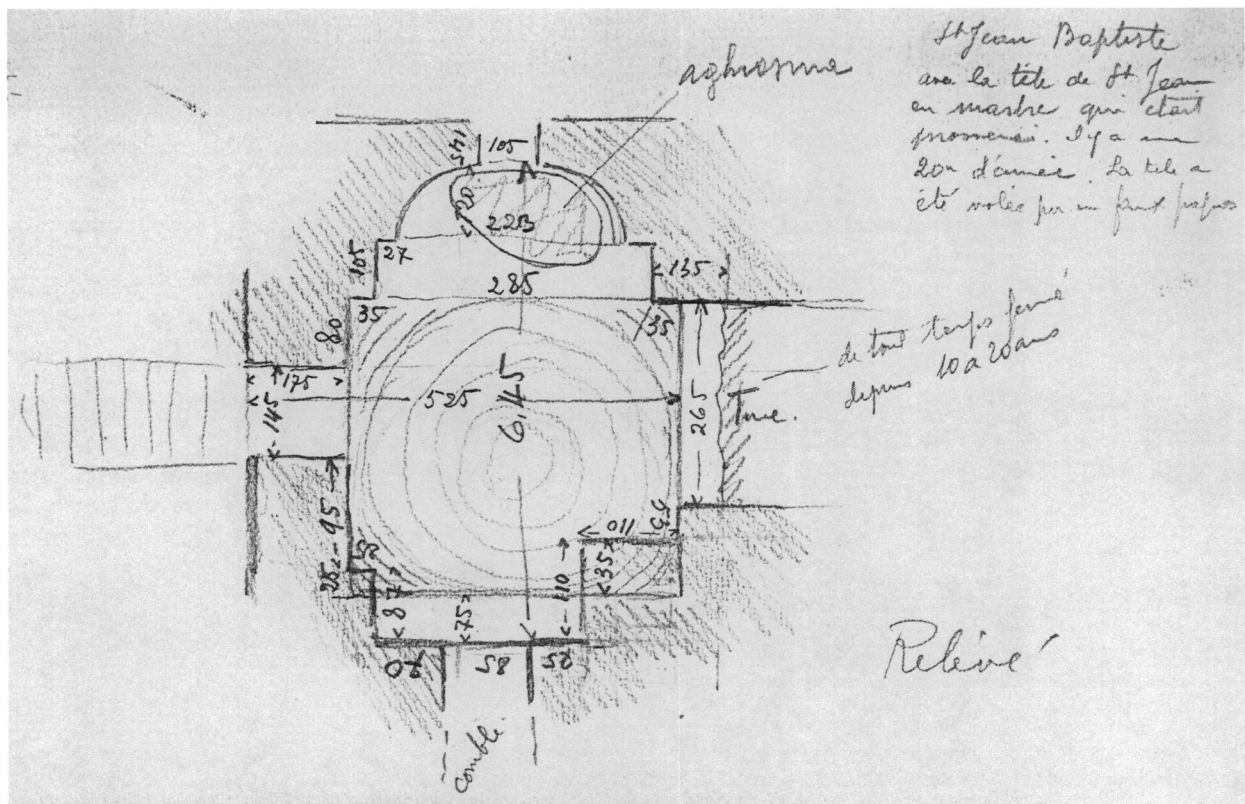 St Jean Baptiste
avec la tête de St Jean
en marbre qui était
promenée. Il y a une
20ne d'année. La tête a
été volée par un faux
aghiasma
105
145
20
223
105
27
135
285
35
35
80
175
525
6.45
145
265
Turc.
de tout temps fermé
depuis 10 à 20 ans
95
55
110
25
25
110
35
87
75
70
85
52
comblé
Relevé